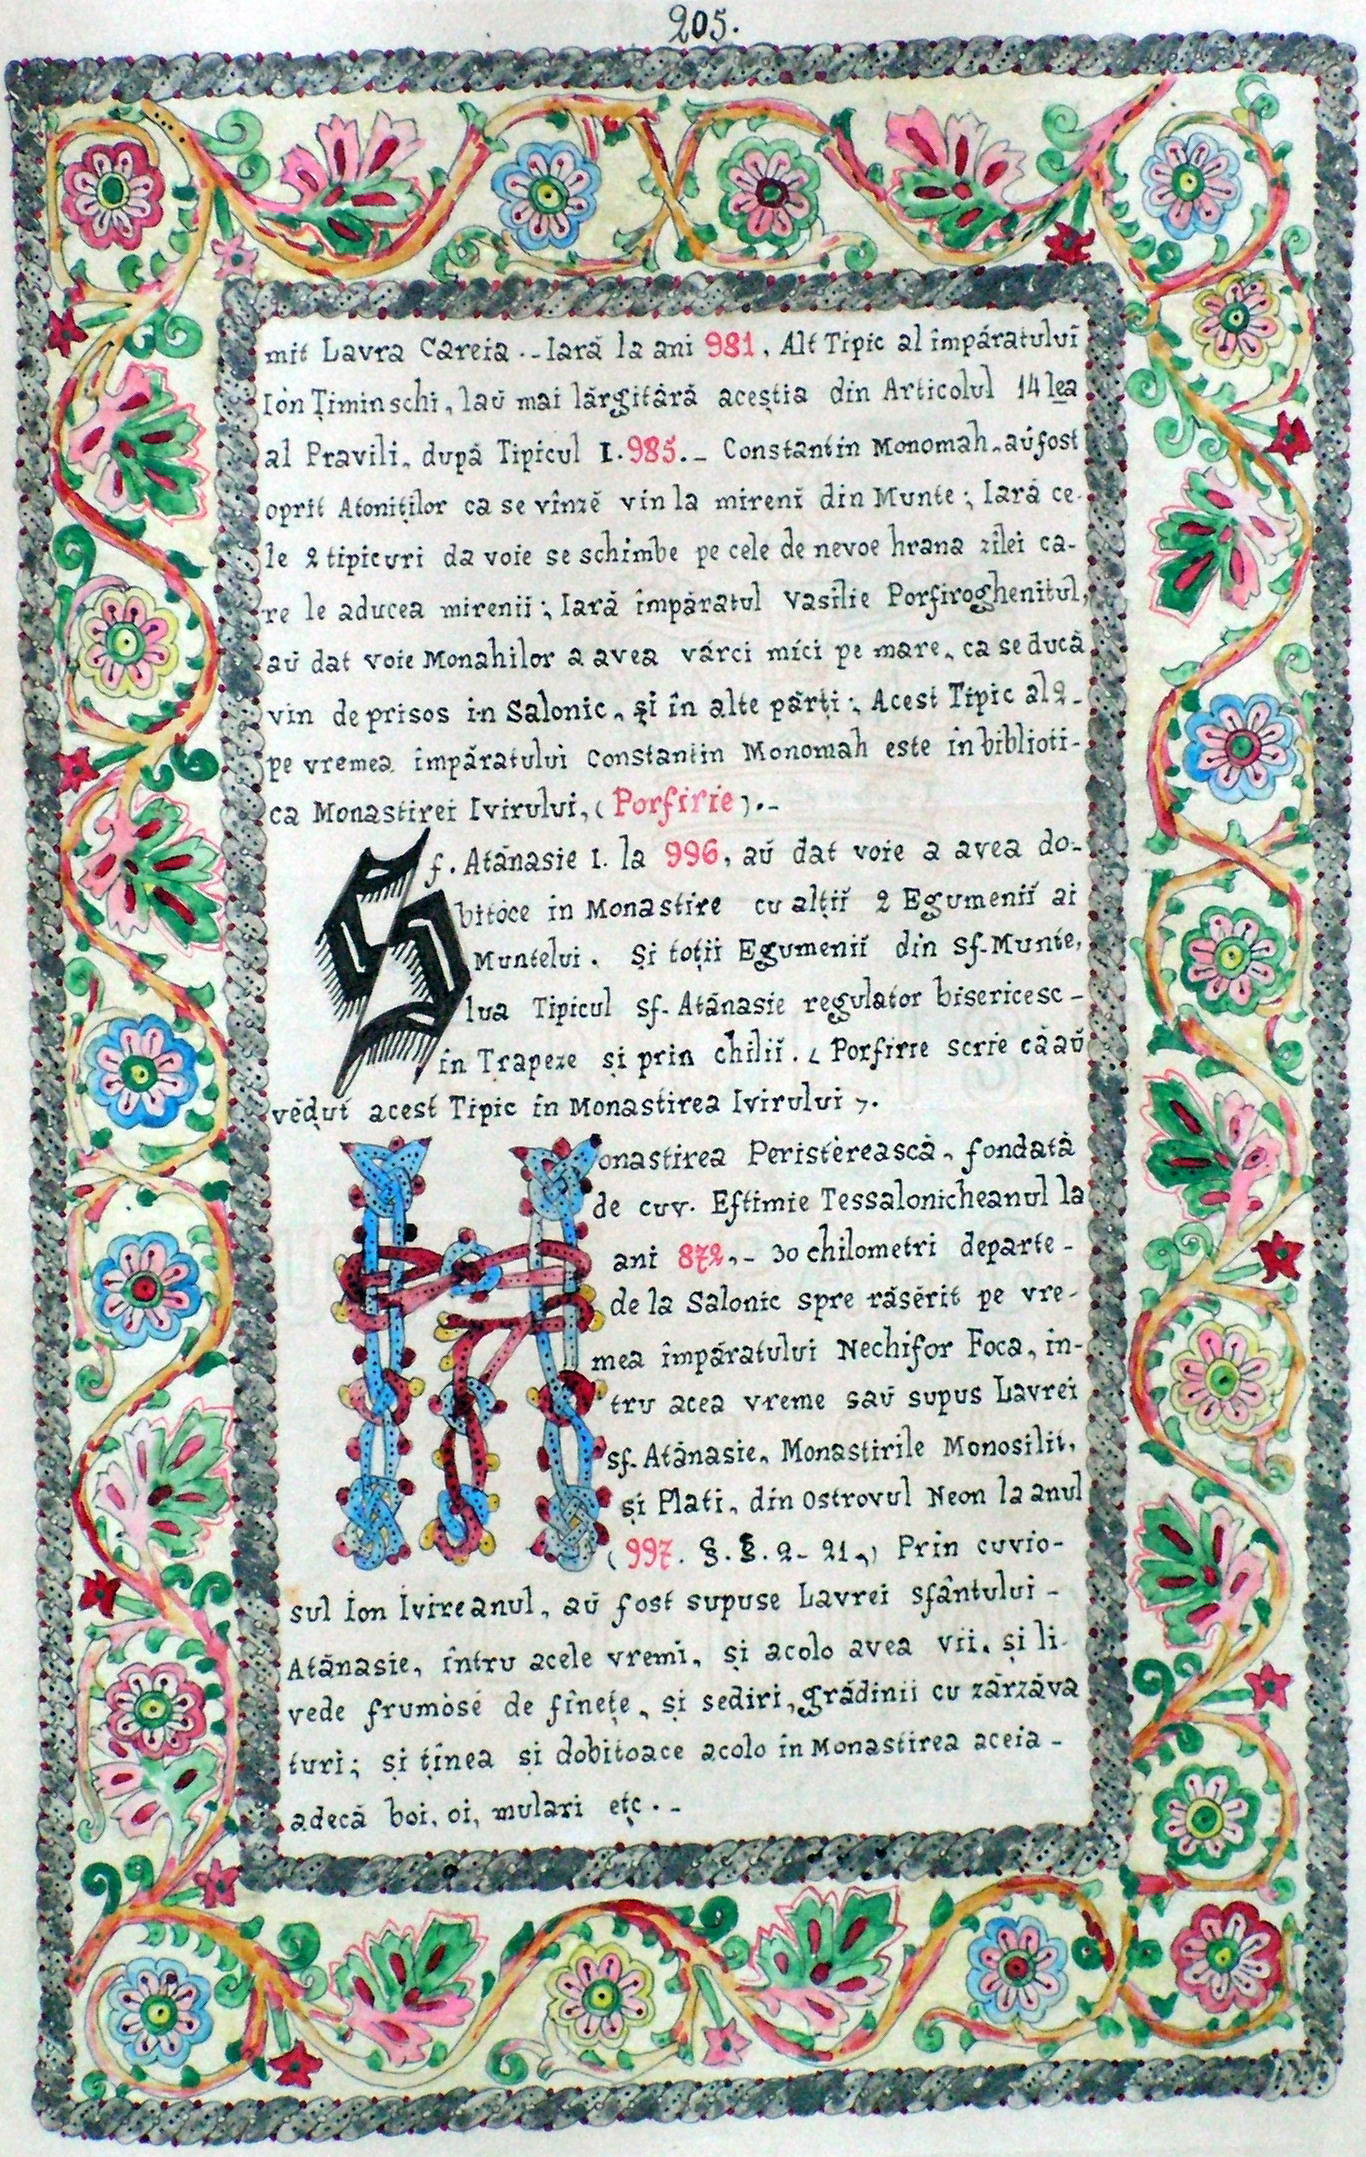 205.
mit Lavra Careia.- Iară la ani 981, Alt Tipic al împăratului
Ion Țiminschi, laŭ mai lărgitără aceștia din Articolul 14 lea
al Pravili, după Tipicul I. 985.- Constantin Monomah, aŭ fost
oprit Atoniților ca se vînzĕ vin la mirenĭ din Munte; Iară ce-
le 2 tipicuri da voie se schimbe pe cele de nevoe hrana zilei ca-
re le aducea mirenii; Iară împăratul Vasilie Porfiroghenitul,
aŭ dat voie Monahilor a avea vărci mici pe mare, ca se ducă
vin de prisos in Salonic, și în alte părți; Acest Tipic al 2-
pe vremea împăratului Constantin Monomah este în biblioti-
ca Monastirei Ivirului, (Porfirie).-
Sf. Atănasie I. la 996, aŭ dat voie a avea do-
bitóce in Monastire cu alțiĭ 2 Egumeniĭ ai
Muntelui. Și toții Egumeniĭ din Sf. Munte,
lua Tipicul Sf. Atănasie regulator bisericesc-
în Trapeze și prin chiliĭ. (Porfirie scrie că aŭ
vĕḑut acest Tipic în Monastirea Ivirului).
Monastirea Peristerească, fondată
de cuv. Eftimie Tessalonicheanul la
ani 872,- 30 chilometri departe-
de la Salonic spre răsĕrit pe vre-
mea împăratului Nechifor Foca, în-
tru acea vreme saŭ supus Lavrei
sf. Atănasie, Monastirile Monosilit,
și Plati, din Ostrovul Neon la anul
(997. §.§. 2- 21,) Prin cuvio-
sul Ion Ivireanul, aŭ fost supuse Lavrei sfântului-
Atănasie, întru acele vremi, și acolo avea vii, și li-
vede frumóse de fînețe, și sediri, grădinii cu zărzăva
turi; și ținea și dobitoace acolo în Monastirea aceia-
adecă boi, oi, mulari etç.-